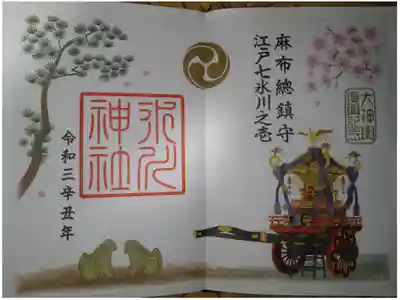 麻布總鎮守
江戸七氷川之壱
氷川
神社
令和三辛丑年